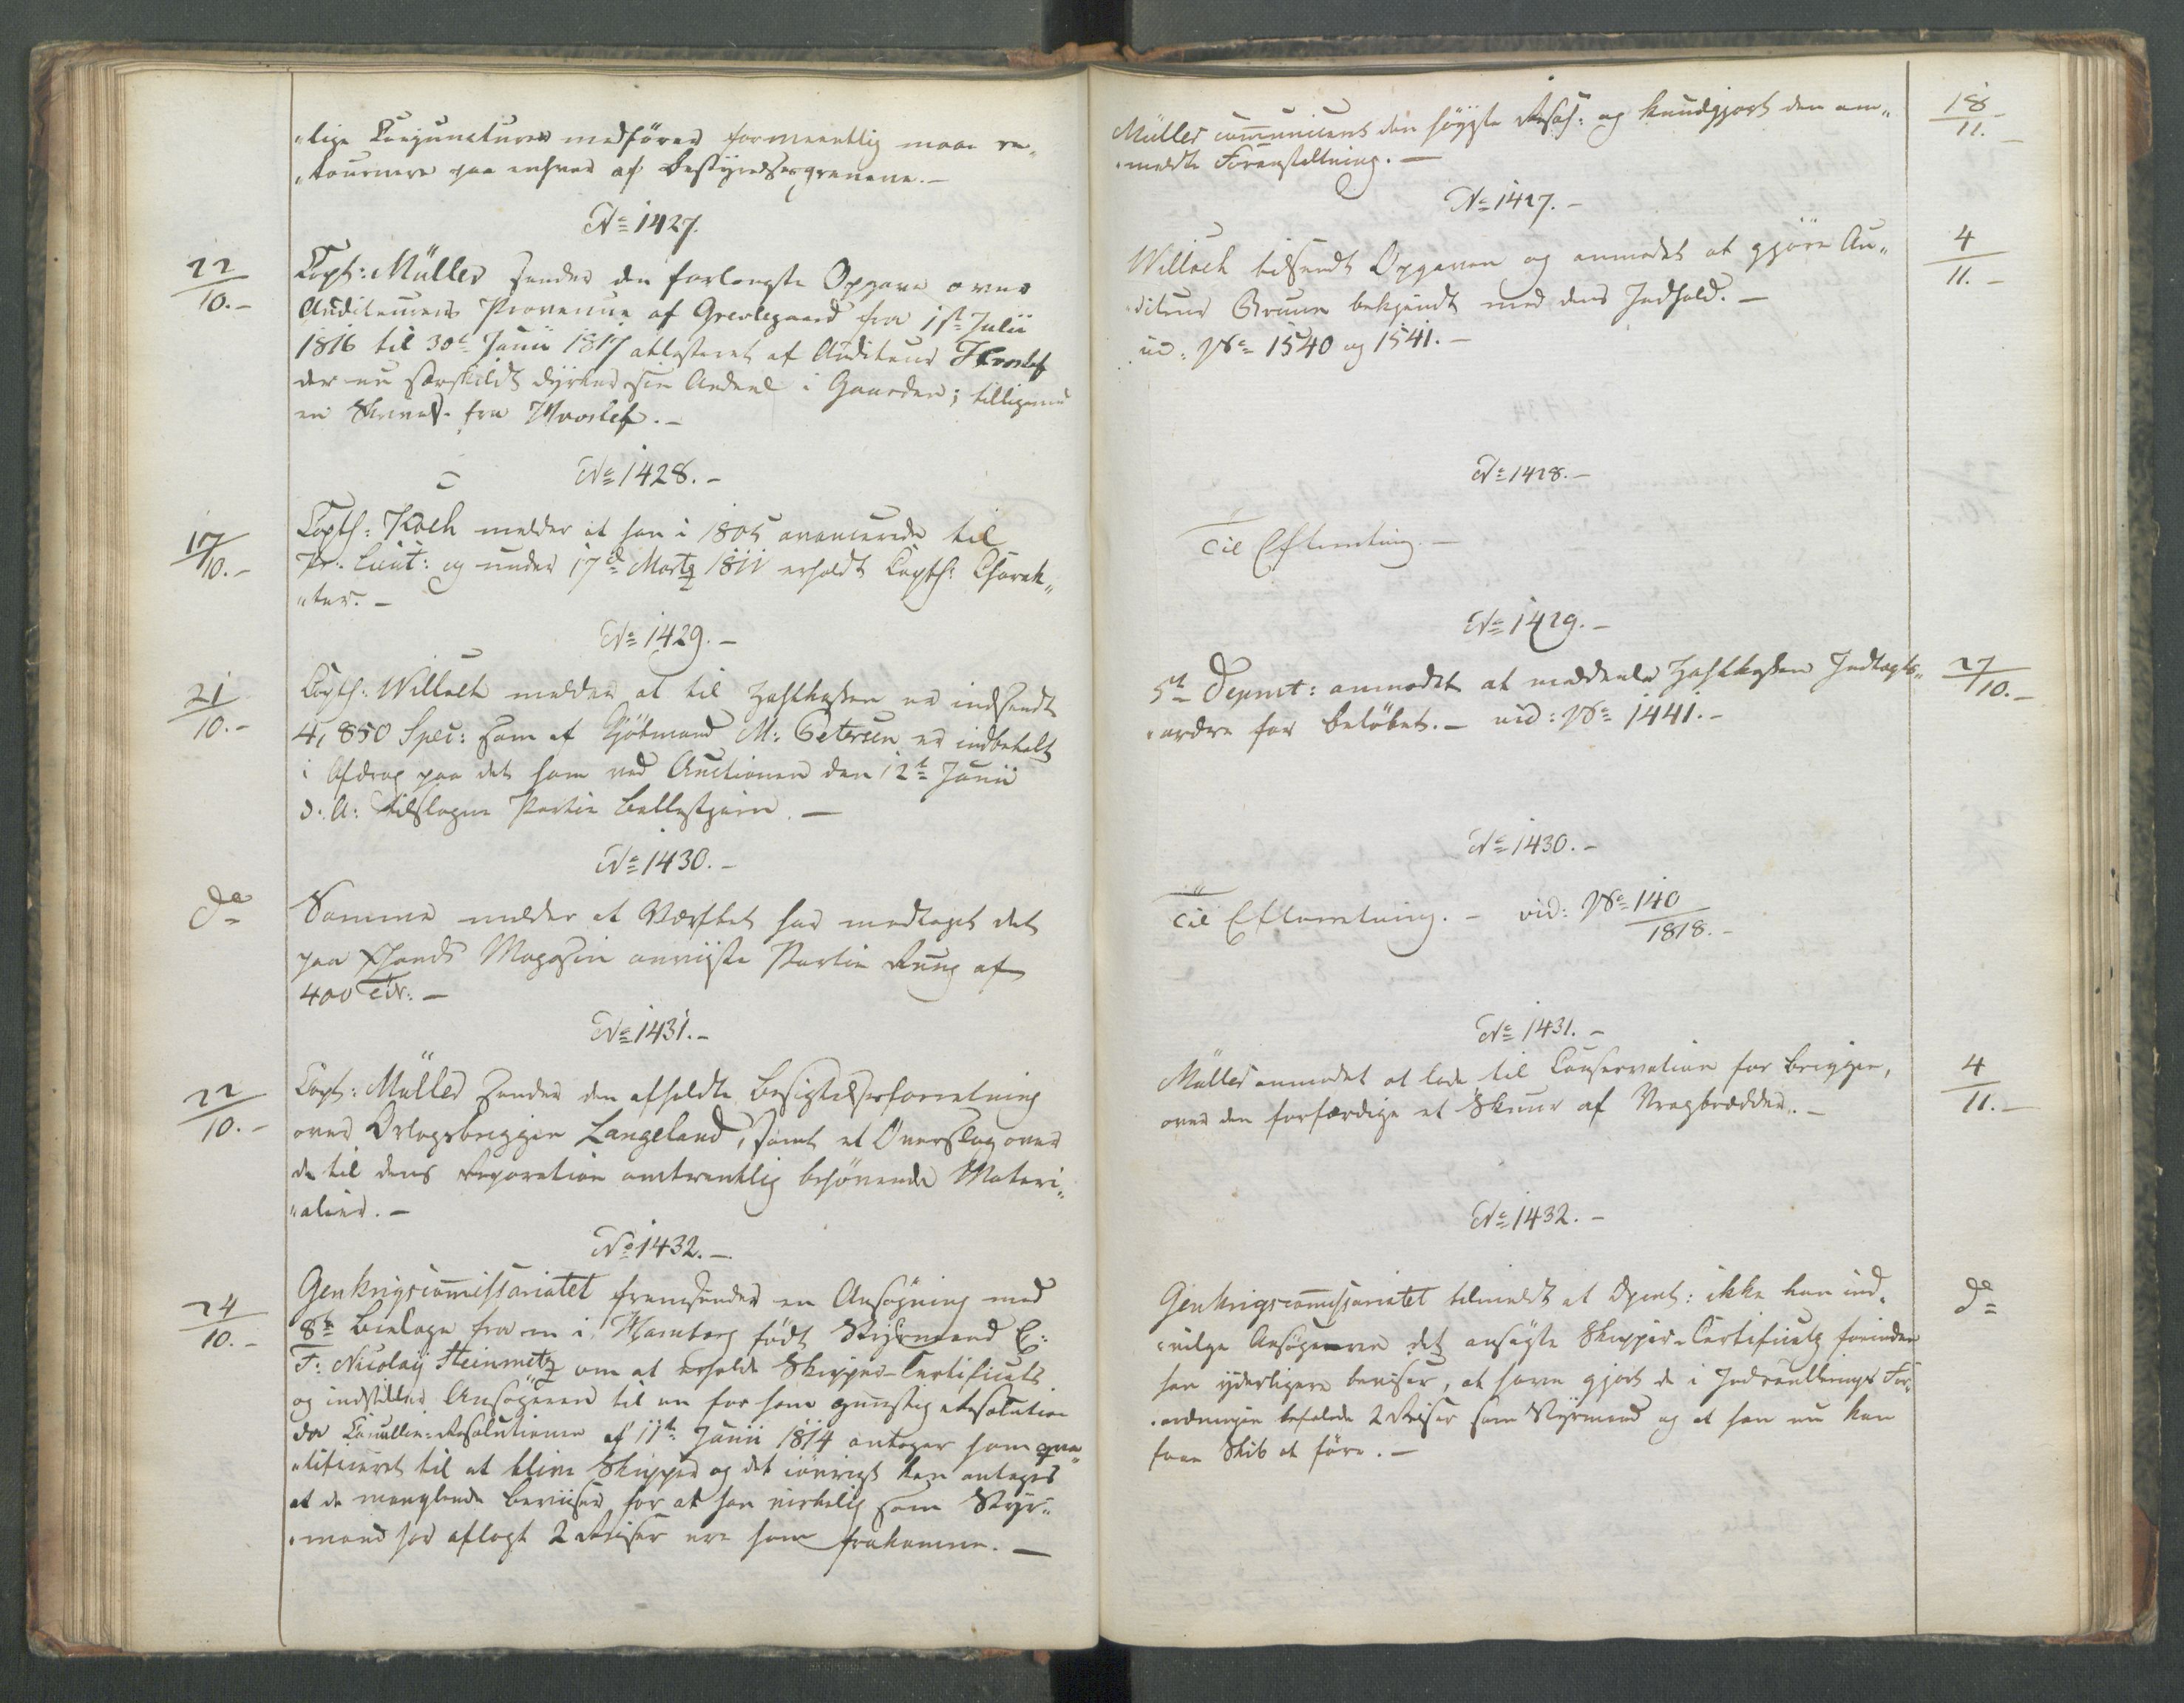 "lige Conjuncturer medfører formeentlig maae re„
"tournere paa enhver af Bestyrelsesgrenene.-
No 1427.
22/10.-
Capt: Müller sender den forlangte Opgave over
Auditeurens Provenue af Grevlegaard fra 1ste Julii
1816 til 30te Junii 1817 attesteret af Auditeur
der nu særskildt dyrker sin Andeel i Gaarden; tilligemed
en Skrivelse fra
No 1428.-
17/10.-
Capth: Koch melder at han i 1805 avancerede til
Pr: Lieut: og under 17de Martz 1811 erholdt Capth: Charak„
"ter.-
No 1429.-
21/10.-
Capth: Willoch melder at til Zahlkassen er indsendt
4,850 Spec: som af Kjöbmand M: Petersen er indbetalt
i Afdrag paa det ham ved Auctionen den 12te Junii
d: A: tilslagne Partie Ballastjern.-
No 1430.-
do
Samme melder at Værftet har modtaget det
paa Magasin anviiste Partie Rug af
400 Tdr:-
No 1431.-
22/10.-
Capt: Müller sender den afholdte Besigtelsesforretning
over Orlogsbriggen Langeland, samt et Overslag over
de til dens Reparation omtrentlig behövende Materi„
"alier.-
No 1432.-
24/10.-
Genkrigscomissariatet fremsender en Ansøgning med
8te Bielage fra en i Hamborg födt Styrmand C:
F: Nicolaij Steinmetz om at erholde Skipper-Certificats
og indstiller Ansögeren til en for ham gunstig Resolution
da Cancellie-Resolutionen af 11te Junii 1814 antager ham qva„
"lificeret til at blive Skipper og det iövrigt kan antages
at de manglende Beviiser for at han virkelig som Styr„
"mand har aflagt 2 Reiser ere ham frakomne.-
Müller communiceret den høyeste Resol: og kundgjort den om„
"meldte Foranstaltning.-
18/11.-
No 1427.-
Willoch tilsendt Opgaven og anmodet at gjöre Au„
"diteur Bruun bekjendt med dens Indhold.-
vid: No 1540 og 1541.-
4/11.-
No 1428.-
Til Efterretning.-
No 1429.-
5te Depmt: anmodet at meddeele Zahlkassen Indtægts„
"ordre for Belöbet.- vid: No 1441.-
27/10.-
No 1430.-
Til Efterretning.- vid: No 140/1818.-
No 1431.-
Müller anmodet at lade til Conservation for Briggen,
over den forfærdige et Skuur af Vragbrædder.-
4/11.-
No 1432.-
Genkrigscommissariatet tilmeldt at Dpmt: ikke kan ind„
"vilge Ansögeren det ansøgte Skipper-Certificatz forinden
han yderligere beviser, at have gjort de i Indrulleringsfor„
"ordningen befalede 2 Reiser som Styrmand og at han nu kan
faae Skib at före.-
do